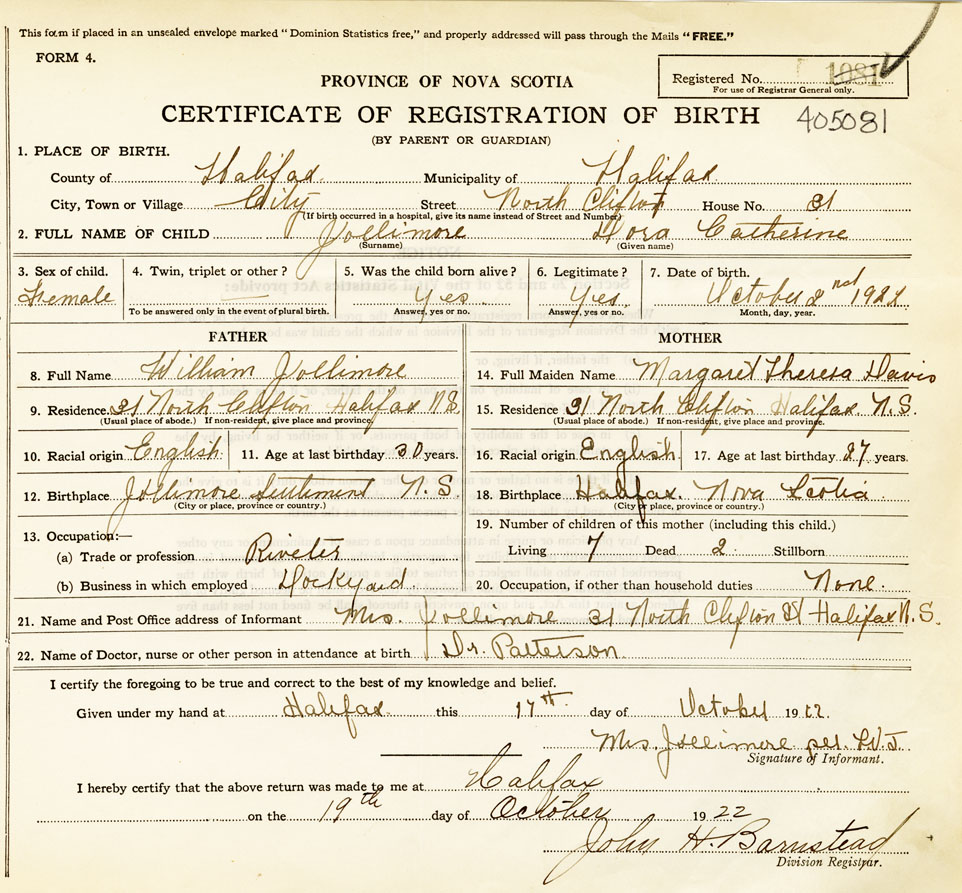 This form if placed in an unsealed envelope marked “Dominion Statistics free,” and properly addressed will pass through the Mails “FREE.”
FORM 4.
Registered No. 1081
For use of Registrar General only.
PROVINCE OF NOVA SCOTIA
CERTIFICATE OF REGISTRATION OF BIRTH 405081
(BY PARENT OR GUARDIAN)
1. PLACE OF BIRTH.
County of Halifax Municipality of Halifax
City, Town or Village City Street North Clifton House No. 31
(If birth occurred in a hospital, give its name instead of Street and Number)
2. FULL NAME OF CHILD Jollimore Dora Catherine
(Surname) (Given name)
3. Sex of child. 4. Twin, triplet or other? 5. Was the child born alive? 6. Legitimate? 7. Date of birth.
Female — Yes Yes October 2nd 1922
To be answered only in the event of plural birth. Answer, yes or no. Answer, yes or no. Month, day, year.
FATHER MOTHER
8. Full Name William Jollimore 14. Full Maiden Name Margaret Theresa Davis
9. Residence 31 North Clifton Halifax N.S. 15. Residence 31 North Clifton Halifax. N.S.
(Usual place of abode.) If non-resident, give place and province. (Usual place of abode.) If non-resident, give place and province.
10. Racial origin English 11. Age at last birthday 30 years. 16. Racial origin English 17. Age at last birthday 27 years.
12. Birthplace Jollimore N.S. 18. Birthplace Halifax. Nova Scotia
(City or place, province or country.) (City or place, province or country.)
19. Number of children of this mother (including this child.)
13. Occupation:—
(a) Trade or profession Riveter Living 7 Dead 2 Stillborn
(b) Business in which employed Dockyard 20. Occupation, if other than household duties None.
21. Name and Post Office address of Informant Mrs. Jollimore 31 North Clifton St Halifax N.S.
22. Name of Doctor, nurse or other person in attendance at birth Dr. Patterson
I certify the foregoing to be true and correct to the best of my knowledge and belief.
Given under my hand at Halifax this 17th day of October 1922.
Mrs. Jollimore per
Signature of Informant.
I hereby certify that the above return was made to me at Halifax
on the 19th day of October 1922
John H. Barnstead
Division Registrar.